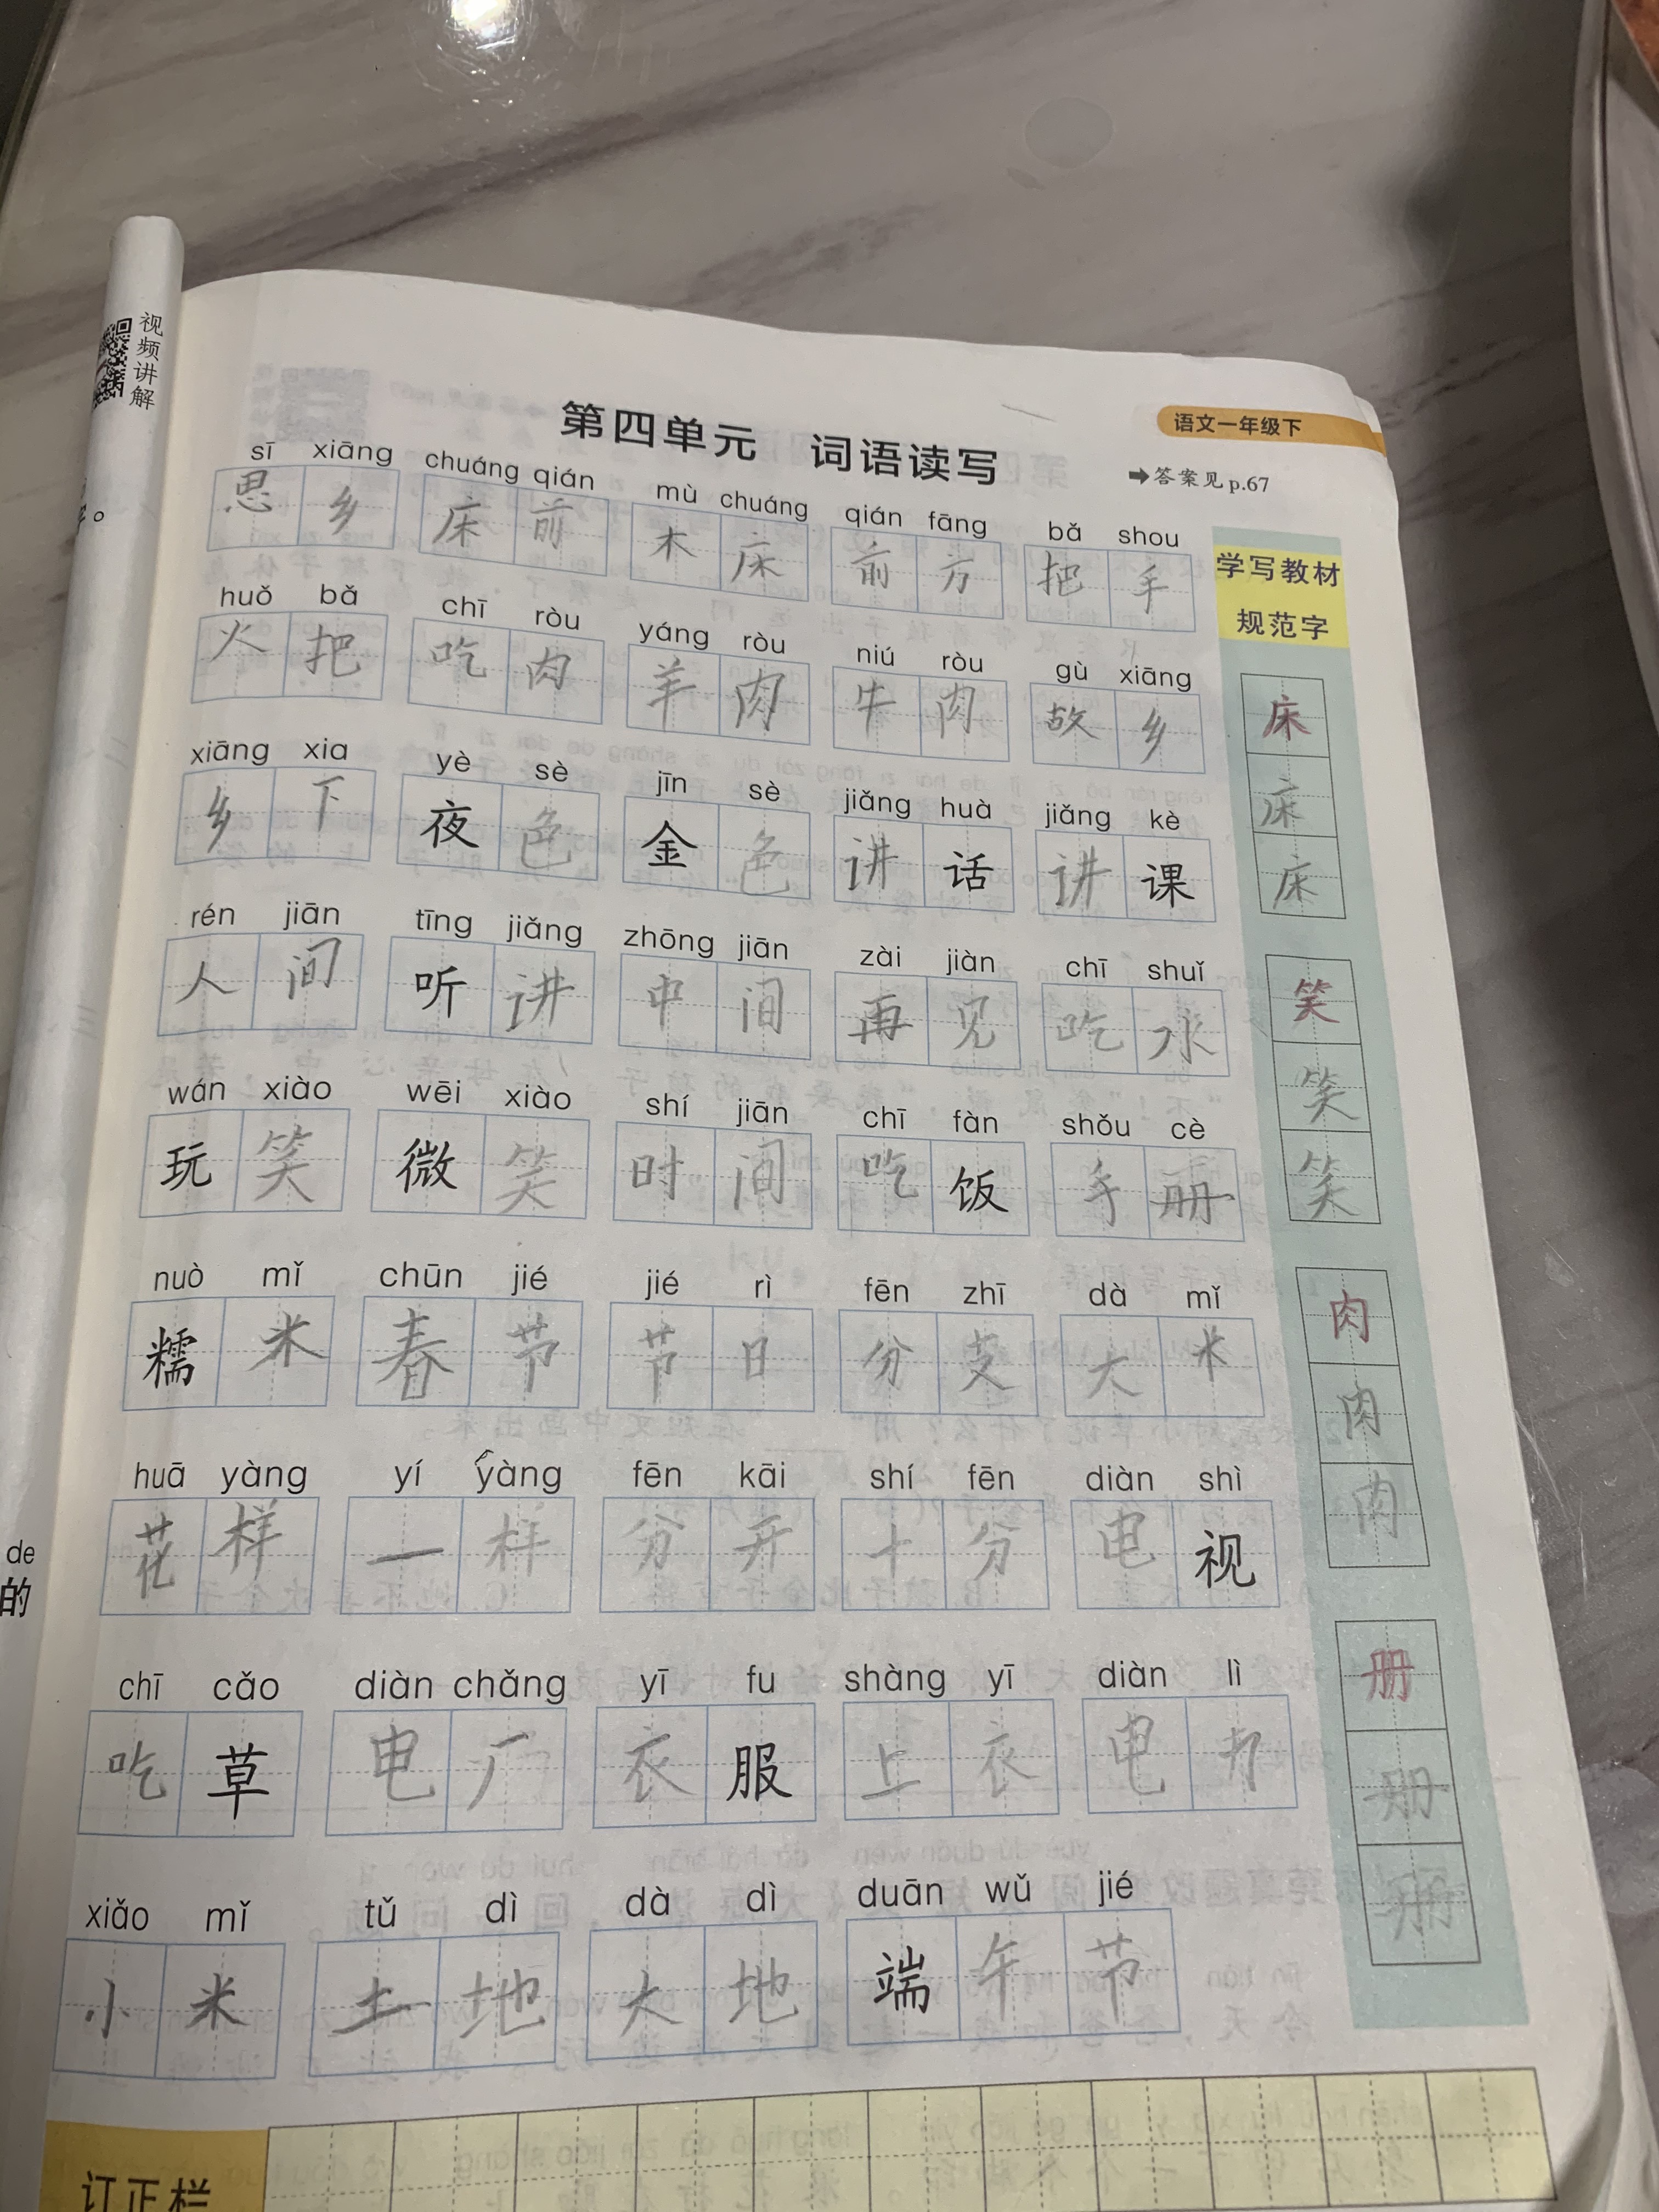 视频讲解
语文一年级下
第四单元 词语读写
➡答案见p.67
sī xiāng chuáng qián mù chuáng qián fāng bǎ shou
思乡 床前 木床 前方 把手
huǒ bǎ chī ròu yáng ròu niú ròu gù xiāng
火把 吃肉 羊肉 牛肉 故乡
xiāng xia yè sè jīn sè jiǎng huà jiǎng kè
乡下 夜色 金色 讲话 讲课
rén jiān tīng jiǎng zhōng jiān zài jiàn chī shuǐ
人间 听讲 中间 再见 吃水
wán xiào wēi xiào shí jiān chī fàn shǒu cè
玩笑 微笑 时间 吃饭 手册
nuò mǐ chūn jié jié rì fēn zhī dà mǐ
糯米 春节 节日 分支 大米
huā yàng yí yàng fēn kāi shí fēn diàn shì
花样 一样 分开 十分 电视
chī cǎo diàn chǎng yī fu shàng yī diàn lì
吃草 电厂 衣服 上衣 电力
xiǎo mǐ tǔ dì dà dì duān wǔ jié
小米 土地 大地 端午节
学写教材
规范字
床
床
床
笑
笑
笑
肉
肉
肉
册
册
册
de
的
订正栏